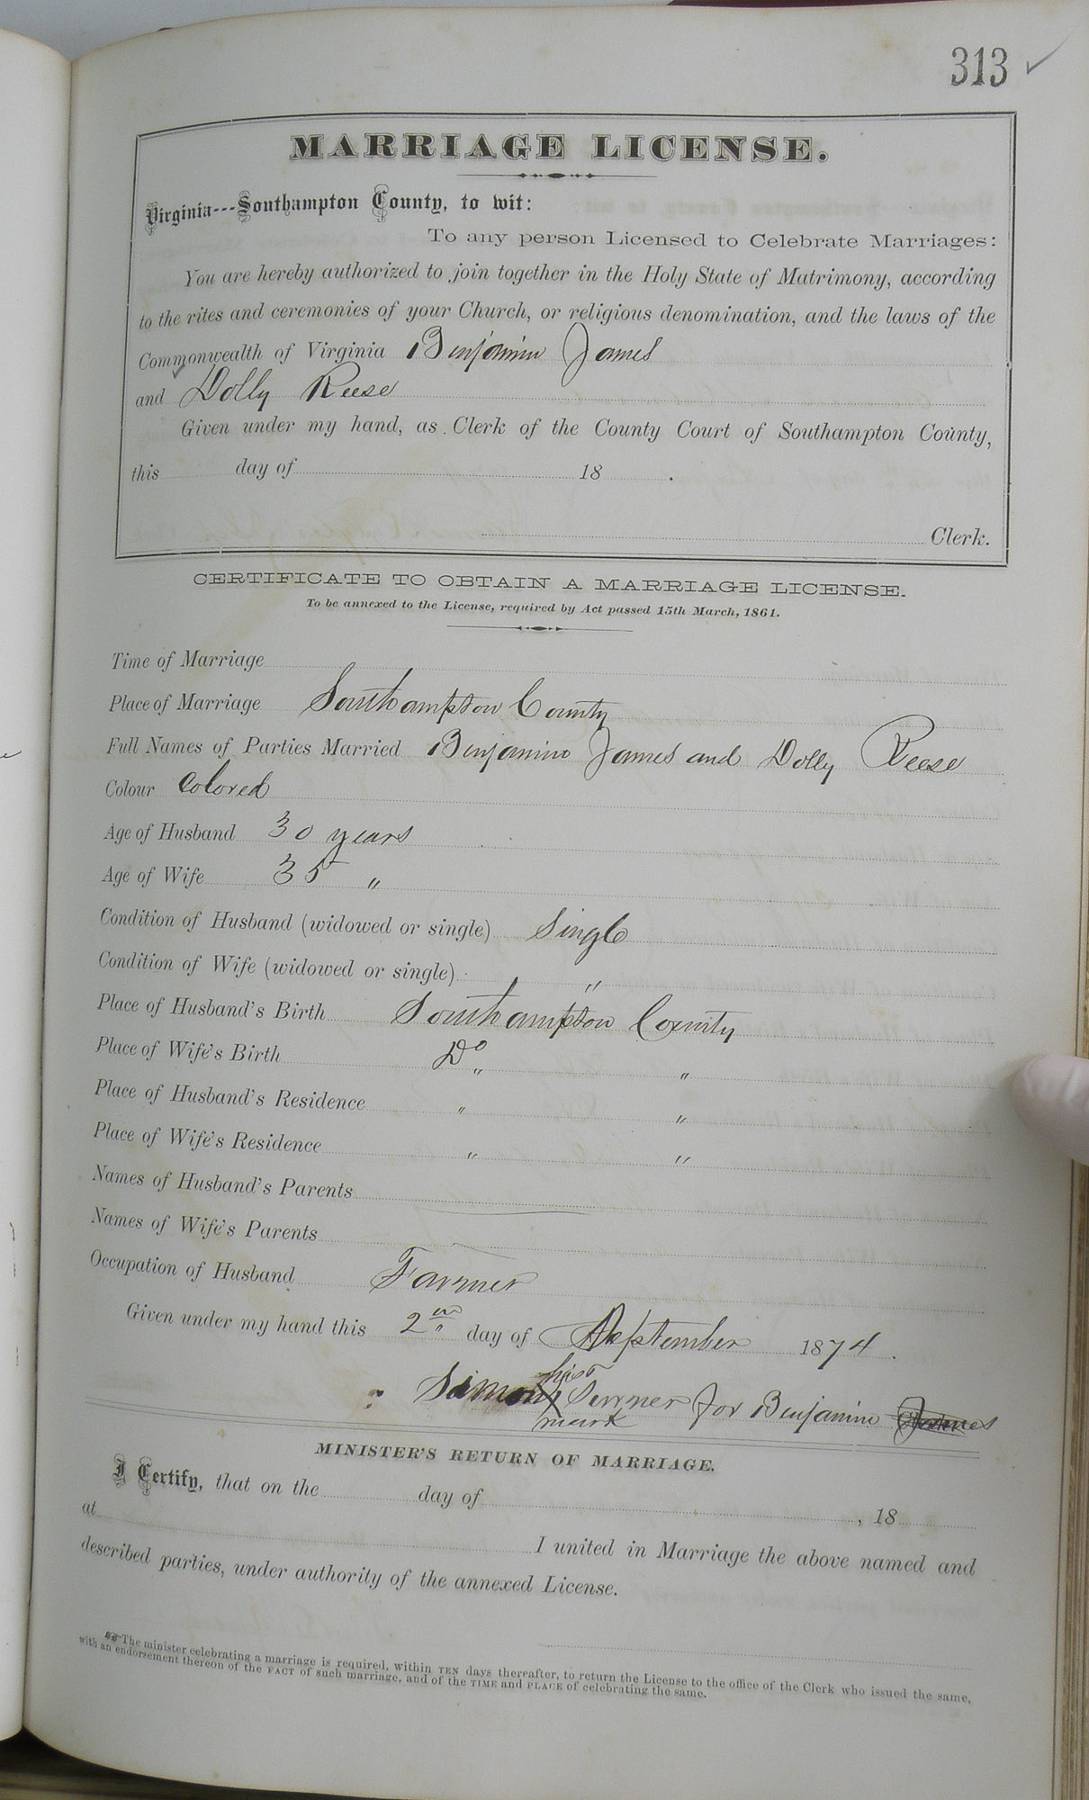 313 ✓
MARRIAGE LICENSE.
Virginia---Southampton County, to wit:
To any person Licensed to Celebrate Marriages:
You are hereby authorized to join together in the Holy State of Matrimony, according
to the rites and ceremonies of your Church, or religious denomination, and the laws of the
Commonwealth of Virginia Benjamin James
and Dolly Reese
Given under my hand, as Clerk of the County Court of Southampton County,
this day of 18 .
Clerk.
CERTIFICATE TO OBTAIN A MARRIAGE LICENSE.
To be annexed to the License, required by Act passed 15th March, 1861.
Time of Marriage
Place of Marriage Southampton County
Full Names of Parties Married Benjamin James and Dolly Reese
Colour Colored
Age of Husband 30 years
Age of Wife 35 "
Condition of Husband (widowed or single) Single
Condition of Wife (widowed or single) "
Place of Husband's Birth Southampton County
Place of Wife's Birth Do " "
Place of Husband's Residence " "
Place of Wife's Residence " "
Names of Husband's Parents
Names of Wife's Parents
Occupation of Husband Farmer
Given under my hand this 2nd day of September 1874.
his
Simon X for Benjamin James
mark
MINISTER'S RETURN OF MARRIAGE.
I Certify, that on the day of , 18
at I united in Marriage the above named and
described parties, under authority of the annexed License.
☞The minister celebrating a marriage is required, within TEN days thereafter, to return the License to the office of the Clerk who issued the same,
with an endorsement thereon of the FACT of such marriage, and of the TIME and PLACE of celebrating the same.